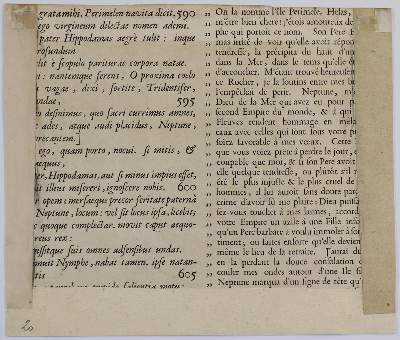 grata mihi, Perimelen navita dicit. 590
ego virgineum dilectæ nomen ademi.
pater Hippodamas ægrè tulit: inque
profundum
è scopulo parituræ corpora natæ.
nantemque ferens, O proxima cœlo
vagæ, dixi, sortite, Tridentifer,
undæ, 595
definimus, quo sacri currimus amnes,
ades, atque audi placidus, Neptune,
precantem.]
ego, quam porto, nocui. si mitis, &
æquus,
pater, Hippodamas, aut si minus impius esset,
illius misereri, ignoscere nobis. 600
opem: mersæque precor feritate paternâ
Neptune, locum: vel sit locus ipsa, licebit;
quoque complectar. movit caput æquo-
reus rex:
concussitque suis omnes adsensibus undas.
Nymphe, nabat tamen. ipse natan-
tis 605
On la nomme l'Ile Perimele. Helas,
m'être bien chere! j'étois amoureux de
phe qui portoit ce nom. Son Pere
irrité de voir qu'elle avoit répon
tendresse, la précipita du haut d'un
dans la Mer, dans le tems qu'elle ét
d'accoucher. M'étant trouvé heureusem
ce Rocher, je la soutins entre mes b
l'empêchai de perir. Neptune,
Dieu de la Mer qui avez eu pour p
second Empire du monde, & à qui
Fleuves rendent hommage en mêla
eaux avec celles qui sont sous votre pu
soiez favorable à mes vœux. Cette
que vous voiez prête à perdre le jour,
coupable que moi, & si son Pere avoit
elle quelque tendresse, ou plutôt s'il
été le plus injuste & le plus cruel de
hommes, il lui auroit sans doute par
crime d'avoir sû me plaire: Dieu puissan
sez-vous toucher à mes larmes, accord
votre Empire un azile à une Fille infor
qu'un Pere barbare a voulu immoler à son
timent; ou faites ensorte qu'elle devien
même le lieu de sa retraite. J'aurai du
en la perdant la douce consolation
couler mes ondes autour d'une Ile si
Neptune marqua d'un signe de tête qu'
20